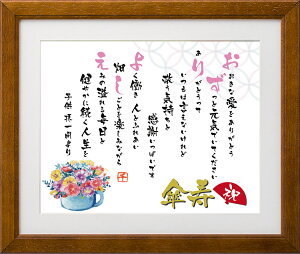 おおきな愛をありがとう
ずっと元気でいてください
ありがとうって
いつもは言えないけれど
敬う気持ちと
感謝でいっぱいです
よく働き 人とふれあい
畑しごとを楽しみながら
えみの溢れる毎日と
健やかに続く人生を
子供 孫 一同より
傘寿
祝